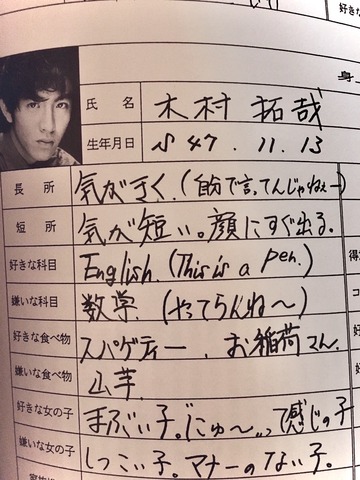 身
氏名 木村拓哉
生年月日 S47.11.13
長所 気がきく。(自分で言ってんじゃねぇー)
短所 気が短い。顔にすぐ出る。
好きな科目 English.(This is a pen.)
嫌いな科目 数学.(やってらんね〜)
好きな食べ物 スパゲティー、お稲荷さん。
嫌いな食べ物 山芋.
好きな女の子 まぶい子。「にゅ〜」って感じの子
嫌いな女の子 しつこい子。マナーのない子。
好き
得